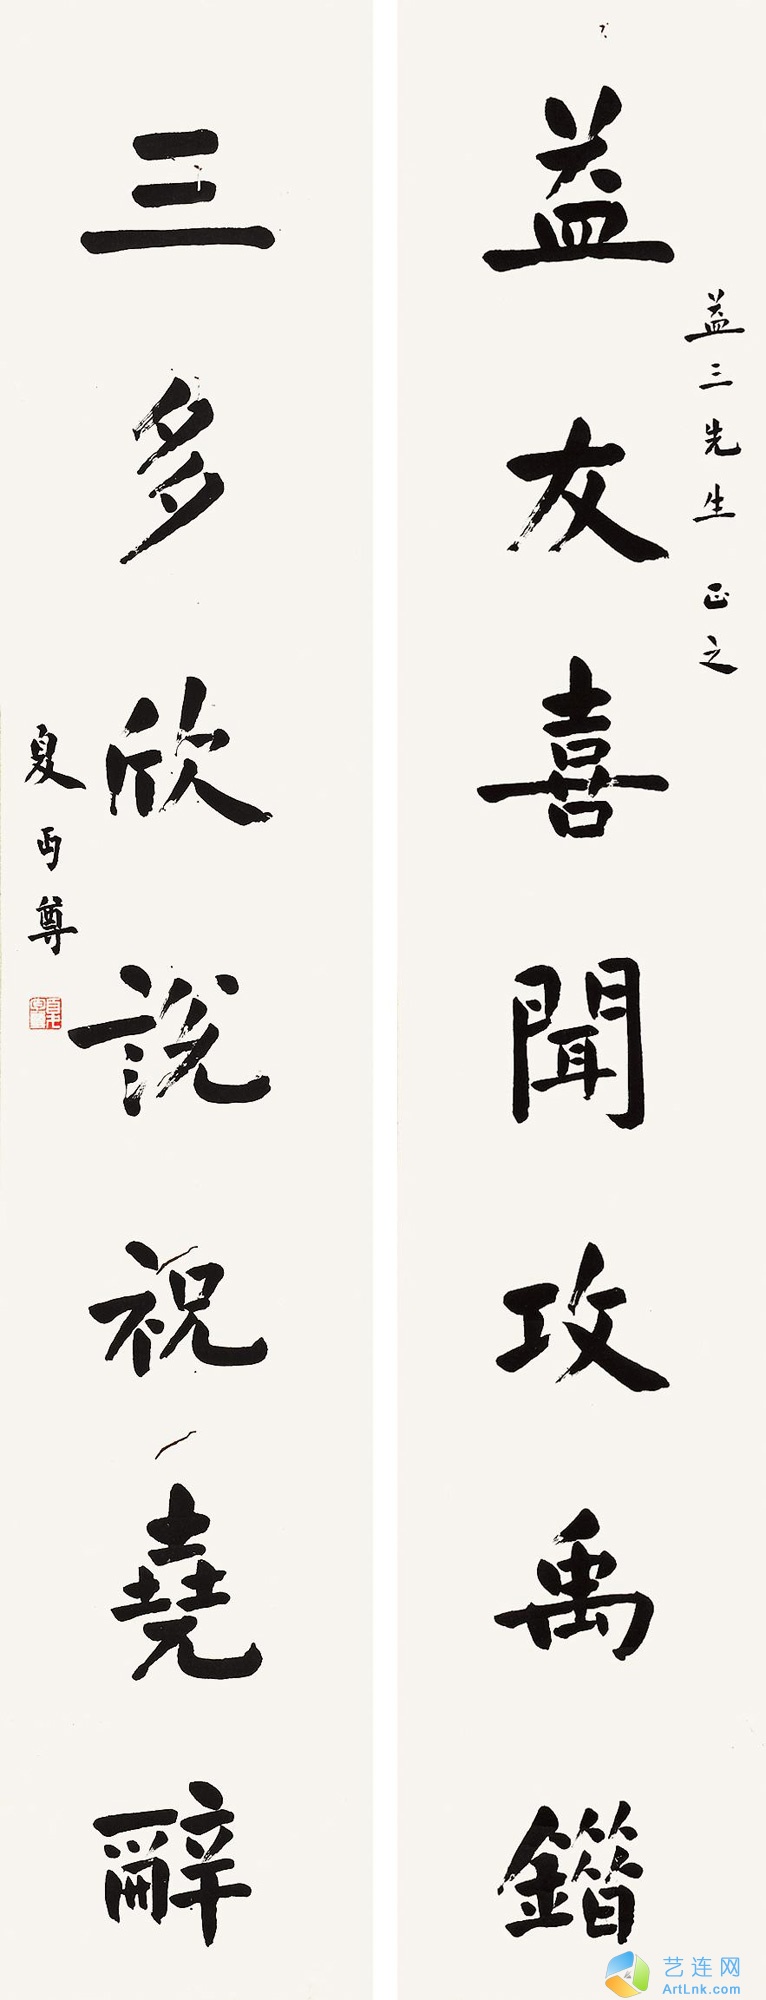 益三先生正之
益友喜聞攻禹鍇
三多欣說祝堯辭
夏丏尊
艺连网
ArtLnk.com